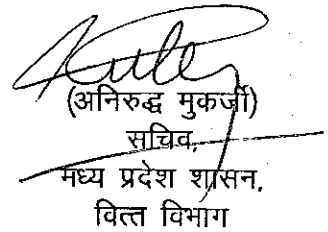 (अनिरुद्ध मुकर्जी)
सचिव,
मध्य प्रदेश शासन,
वित्त विभाग